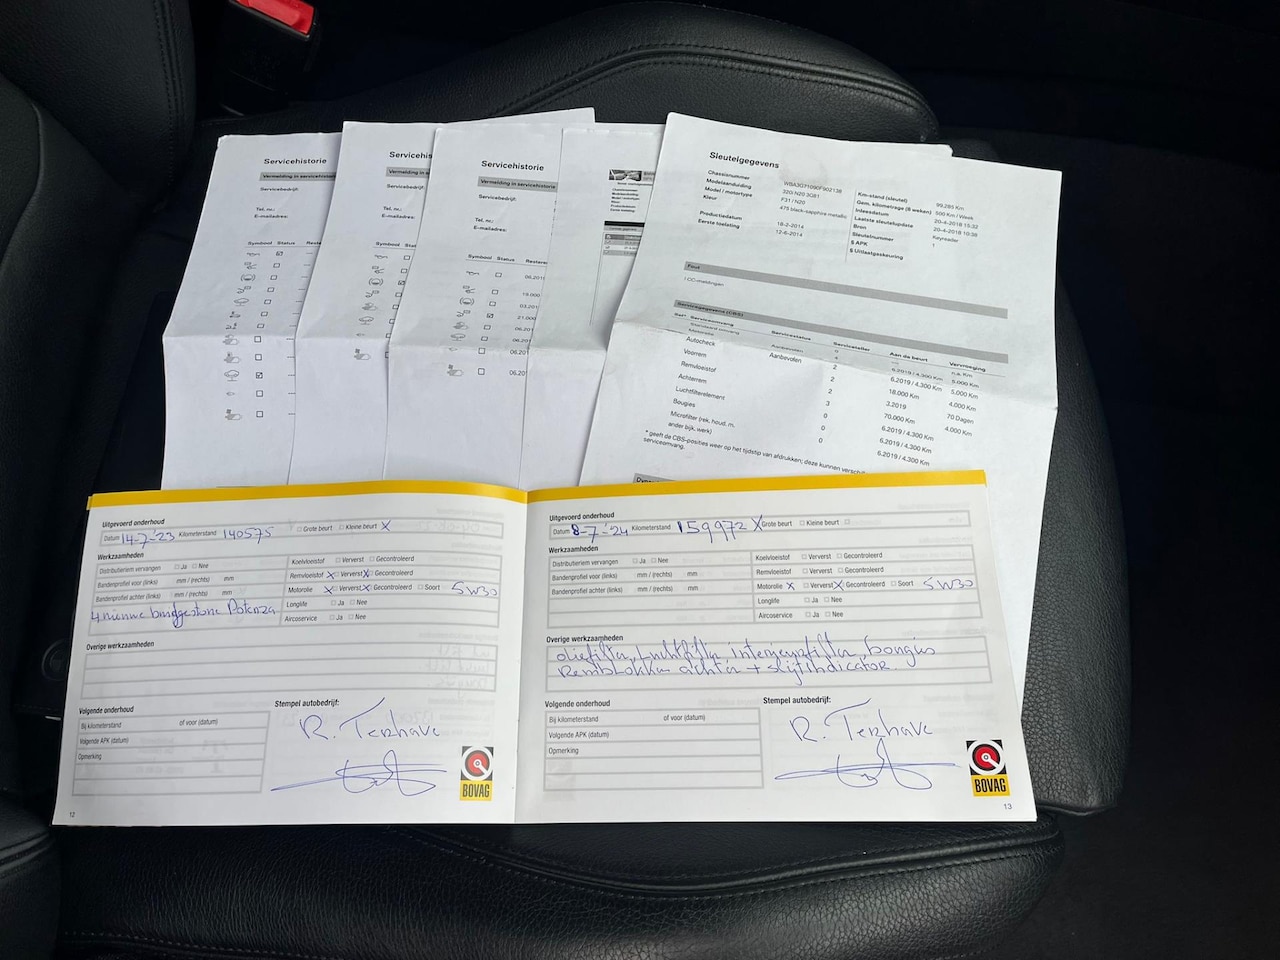 Servicehistorie
Vermelding in servicehistorie
Servicebedrijf:
Tel. nr.:
E-mailadres:
Symbool Status Restere
Servicehistorie
Vermelding in
Servicebedrijf:
Tel. nr.:
E-mailadres:
Symbool
Servicehistorie
Vermelding in servicehistorie
Servicebedrijf:
Tel. nr.:
E-mailadres:
Symbool Status Restere
06.201
19.000
03.201
21.000
06.201
06.201
06.201
06.201
Sleutelgegevens
Chassisnummer WBA3G71090F902138
Modelaanduiding 320i N20 3G81
Model / motortype F31 / N20
Kleur 475 black-sapphire-metallic
Productiedatum 18-2-2014
Eerste toelating 12-6-2014
Km-stand (sleutel) 99.285 Km
Gem. kilometrage (8 weken) 590 Km / Week
Inleesdatum 20-4-2018 15:32
Laatste sleutelupdate 20-4-2018 10:38
Bron Keyreader
Sleutelnummer 1
$ APK
$ Uitlaatgaskeuring
Fout
! CC-meldingen
Servicegegevens (CBS)
Ser* Serviceomvang Servicestatus Serviceteller Aan de beurt Vervroeging
Standaard omvang 0 n.a. Km
Motorolie Aanbevolen 6.2019 / 4.300 Km 5.000 Km
Autocheck Aanbevolen 2 6.2019 / 4.300 Km 5.000 Km
Voorrem 2 18.000 Km 4.000 Km
Remvloeistof 2 3.2019 70 Dagen
Achterrem 3 70.000 Km 4.000 Km
Luchtfilterelement 0 6.2019 / 4.300 Km
Bougies 0 6.2019 / 4.300 Km
Microfilter (rek. houd, m. 0 6.2019 / 4.300 Km
ander bijk, werk)
* geeft de CBS-posities weer op het tijdstip van afdrukken; deze kunnen verschil
serviceomvang.
Uitgevoerd onderhoud
Datum 14-7-'23 Kilometerstand 140575 Grote beurt Kleine beurt X
Werkzaamheden
Distributieriem vervangen Ja Nee
Bandenprofiel voor (links) mm / (rechts) mm
Bandenprofiel achter (links) mm / (rechts) mm
4 nieuwe bridgestone Potenza
Koelvloeistof Ververst Gecontroleerd
Remvloeistof X Ververst X Gecontroleerd
Motorolie X Ververst X Gecontroleerd Soort 5W30
Longlife Ja Nee
Aircoservice Ja Nee
Overige werkzaamheden
Volgende onderhoud
Bij kilometerstand of voor (datum)
Volgende APK (datum)
Opmerking
Stempel autobedrijf:
R. Terhave
BOVAG
12
Uitgevoerd onderhoud
Datum 8-7-'24 Kilometerstand 159972 X Grote beurt Kleine beurt
Werkzaamheden
Distributieriem vervangen Ja Nee
Bandenprofiel voor (links) mm / (rechts) mm
Bandenprofiel achter (links) mm / (rechts) mm
Koelvloeistof Ververst Gecontroleerd
Remvloeistof Ververst Gecontroleerd
Motorolie X Ververst X Gecontroleerd Soort 5W30
Longlife Ja Nee
Aircoservice Ja Nee
Overige werkzaamheden
oliefilter, luchtfilter interieurfilter bougies
Remblokken achter + slijtindicator
Volgende onderhoud
Bij kilometerstand of voor (datum)
Volgende APK (datum)
Opmerking
Stempel autobedrijf:
R. Terhave
BOVAG
13